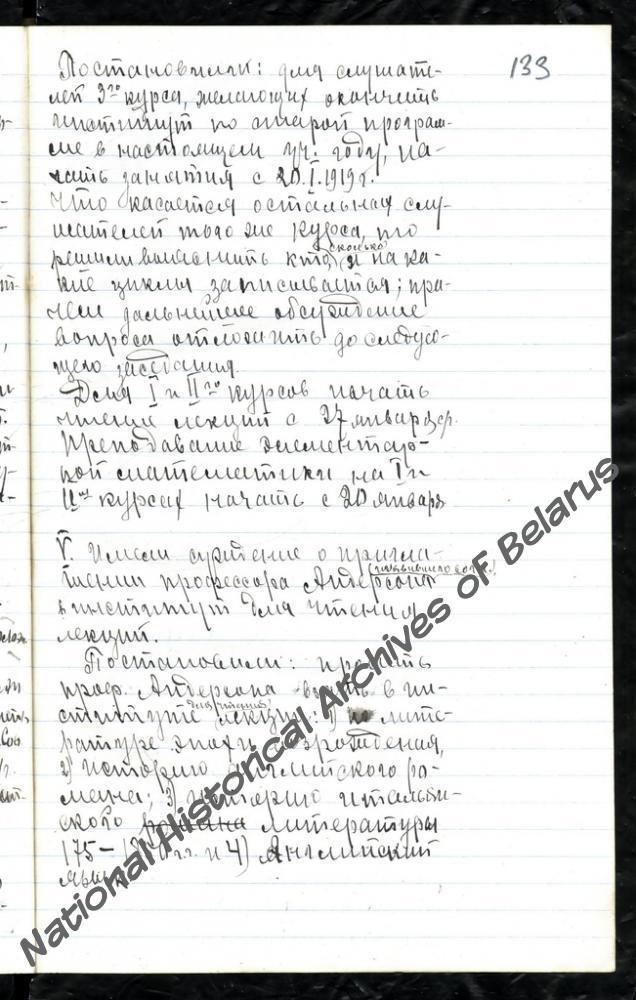 133
Постановили: для слушате-
лей 3го курса, желающих окончить
институт по старой програм-
ме в настоящем уч. году, на-
чать занятия с 20.I.1919г.
Что касается остальных слу-
шателей того же курса, то
решили выяснить кто, сколько и на ка-
кие циклы записывается; при-
чем дальнейшее обсуждение
вопроса отложить до следую-
щего заседания.
Для I и IIго курсов начать
чтение лекций с 27 января
Преподавание элементар-
ной математики на I и
II курсах начать с 20 января
V. Имели суждение о пригла-
шении профессора Андерсона
в институт для чтения
лекций.
Постановили: просить
проф. Андерсона взять в ин-
ституте для чтения лекции: 1) по лите-
ратуре эпохи возрождения,
2) историю английского ро-
мана; 3) историю итальян-
ского романа литературы
175– и 4) Английский
язык
National Historical Archives of Belarus